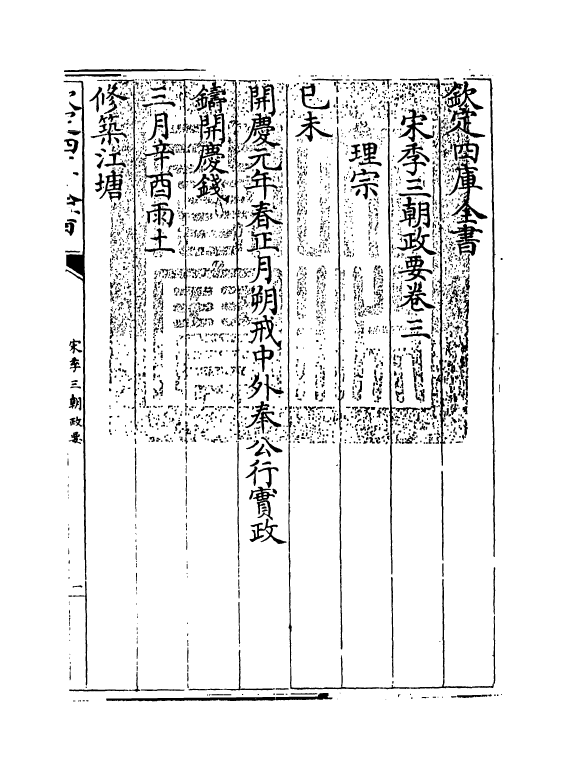 欽定四庫全書
宋季三朝政要卷三
理宗
已未
開慶元年春正月朔戒中外奉公行實政
鑄開慶錢
三月辛酉雨土
修築江塘
宋季三朝政要